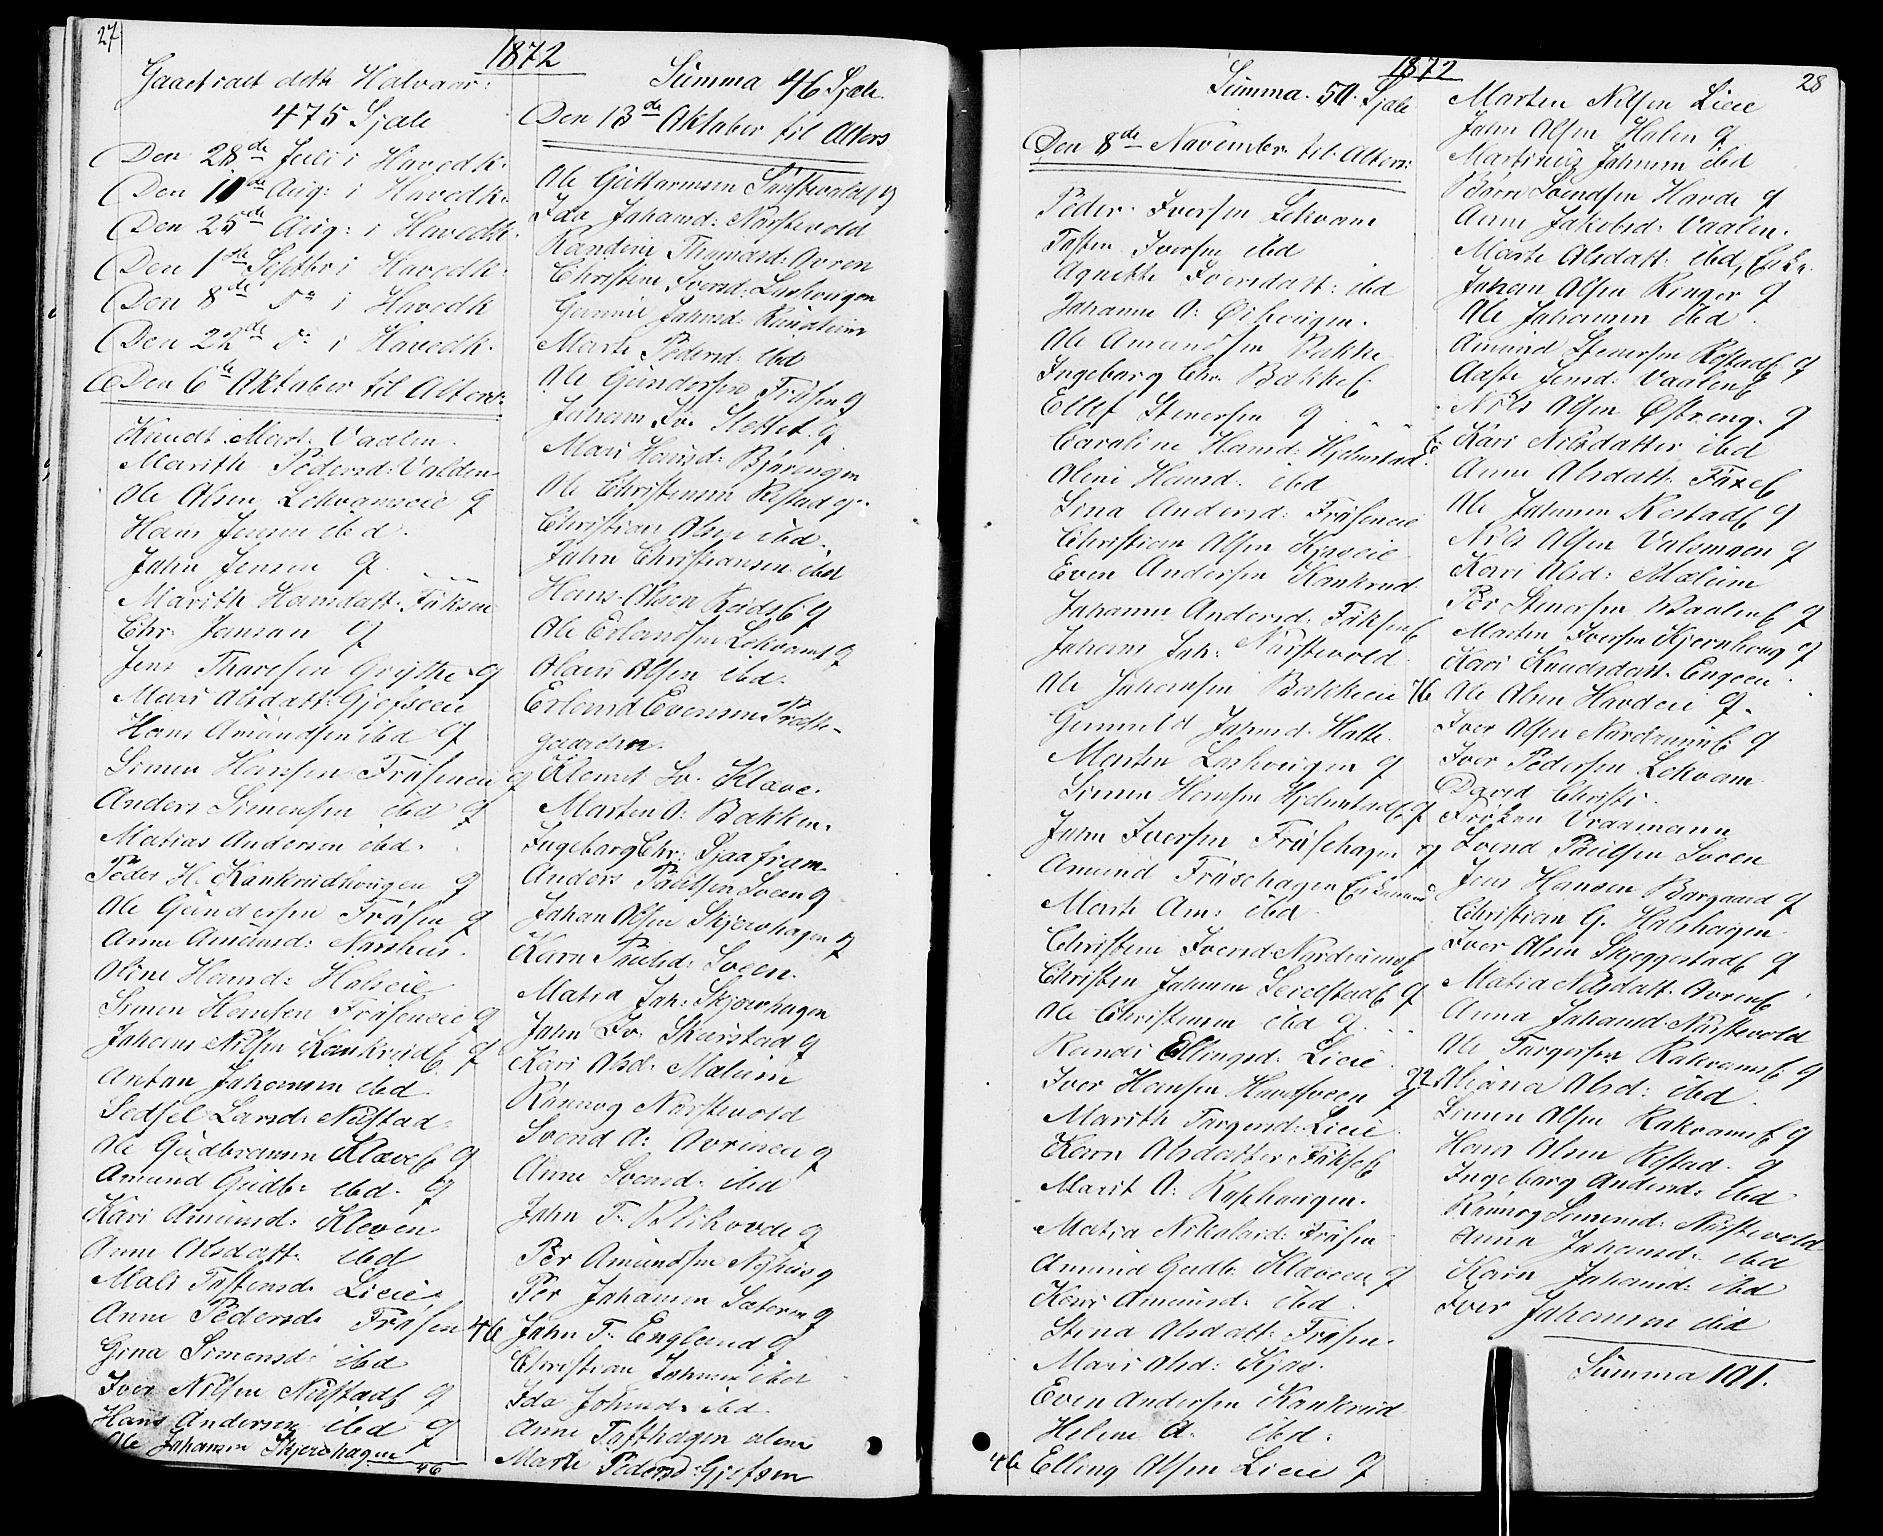 27
1872
Gaaet ract dette Halvaar:
475 Sjæle
Den 28de Juli i Havedk.
Den 11de Aug: i Havedk.
Den 25de Aug: i Havedk.
Den 1ste Septbr i Havedk.
Den 8de do i Havedk
Den 22de do i Havedk.
Den 6te Aktaber til Alters:
Knudt Mart. Vaalen.
Marith Pedersd: Valden
Ole Olsen Lekvamseie g
Hans Jensen ibd.
John Jensen g
Marith Hansdatt. Fåksen
Chr. Jansan g
Jens Tharesen Grytte g
Mari Olsdatt: Gjefseie
Hans Amundsen ibd g
Simen Hansen Frøseneie g
Anders Simensen ibd g
Matias Andersen ibd.
Peder H. Kankrudhougen g
Ole Gundersen Frøsen g
Anne Amunds: Narshus.
Oline Hansd: Halieie
Simen Hansen Frøseneie g
Johans Nilsen KankrudE g
Antan Johansen ibd
Sedsel Larsd. Nustad
Ole Gudbransen KlaveE g
Amund Gudb. ibd. g
Kari Amunsd: Kleven
Anne Olsdatt. ibd
Mali Tostensd. Lieie
Anne Pedersd. Frøsen
Gina Simensd. ibd
Iver Nilsen NustadE g
Hans Andersen ibd g
Ole Johansen Skjervhagen
46
Summa 46 Sjæle.
Den 13de Aktaber til Alters
Ole Guttarmsen g
Ida Johansd: Nørstevold
Randine Thomasd. Ovren
Christine Iversd: Løshougen
Gunnil Johnsd: Rundtein
Marte Pedersd: ibd
Ole Gundersen Frøsen g
Johans Iv. Slettet g
Mari Hansd: Bjøringen
Ole Christensen Restad g.
Christian Olsen ibd.
John Christiansen ibd
Hans Olsen RudsE g
Ole Erlandsen Lekvams g
Olaus Olsen ibd.
Erland Evensen Præste-
gaarden.
Klemet Iv. Klave.
Marten O: Bakken.
Ingebarg Chr: Sjaafram
Anders Paulsen Sveen g
Johan Olsen Skjervhagen g
Karn Paulsd: Sveen.
Matia Joh: Skjervhagen
John Iv. Skarstad g
Kari Olsd. Mælum
Rønnog Nørstevold
Svend O: Ovrenen g
Anne Svensd. ibd
John T. Blikovde g
Per Amundsen Nyhus g
Per Johansen Sæteren g
46 John T. Englund g
Christian Johnsen ibd
Ida Johnsd. ibd
Anne Tofthagen alene
Marte Pedersd: Gjefsen
1872
Summa. 50. Sjæle
Den 8de November til Alters:
Peder Iversen Lekvam
Tosten Iversen ibd
Agnethe Iversdatt: ibd
Johanne O: Øihougen.
Ole Amundsen Bakke
Ingebarg Chr. BakkeE.
Ellef Stenersen g
Caraline Hansd: HjelmstadE.
Oline Hansd. ibd
Lina Andersd: Frøseneie
Christian Olsen Kjøseie
Even Andersen Kankrud
Johanne Andersd: FåksenE
Johans Joh: Nørstevold
Ole Johansen Bakkeeie
Gunnild Johnsd. Halte.
Marten Løshougen g
Simen Hansen HjelmstadE g
John Iversen Frøsehagen g
Amund Frøsehagen Enkemand
Marte Am: ibd
Christine Iversd: NordrumsE
Christen Johnsen SeielstadE g
Ole Christensen ibd g
Randi Ellingsd. Lieie
Iver Hansen Hundsveen g
Marith Targersd: Lieie
Karn Olsdatter FåkseE
Marit O: Kophougen.
Matia Nikolaisd: Frøsen
Amund Gudb: Klaveeie g
Kari Amunsd: ibd
Stina Olsdatt: Frøsen.
Mari Olsd: Kjøs.
Even Andersen Kankrud
Helene A. ibd.
46 Elling Olsen Lieie g
28
Marten Nilsen Lieie
John Olsen Halen g
Martinus Johnsen ibd
Børre Svendsen Havde g
Anne Jakobsd: Vaalen.
Marte Olsdatt. ibd, Enke.
Johan Olsen Ringer g
Ole Johansen ibd
Amund Stenersen RostadE g
Aaste Jensd: VaalenE
Nils Olsen Østreng. g
Kari Nilsdatter ibd
Anne Olsdatt. FåxeE
Ole Johnsen RestadE g
Nils Olsen Valsmoen g
Kari Olsd: Mælum
Per Stenersen VaalenE g
Marten Iversen Kjernhoug g
Kari Knudsdatt. Engeen
76 Ole Olsen Havdeie g.
Iver Olsen NordrumsE g
Iver Pedersen Lekvam
David Christi.
Frøken Vraamann
Svend Paulsen Sveen
Jens Hansen Borgaard g
Christian G. Halshagen
Iver Olsen SkjeggestadE g
Matia Nilsdatt. OvrenE
Anna Johansd. Nørstevold
Ole Targersen RakvamsE g
92 Uliana Olsd: ibd
Simen Olsen RakvamsE g
Hans Olsen Rostad. g
Ingebarg Andersd: ibd
Rønnog Simensd: Nørstevold
Anna Johansd: ibd
Karn Johansd: ibd
Iver Johansen ibd
Summa 101.